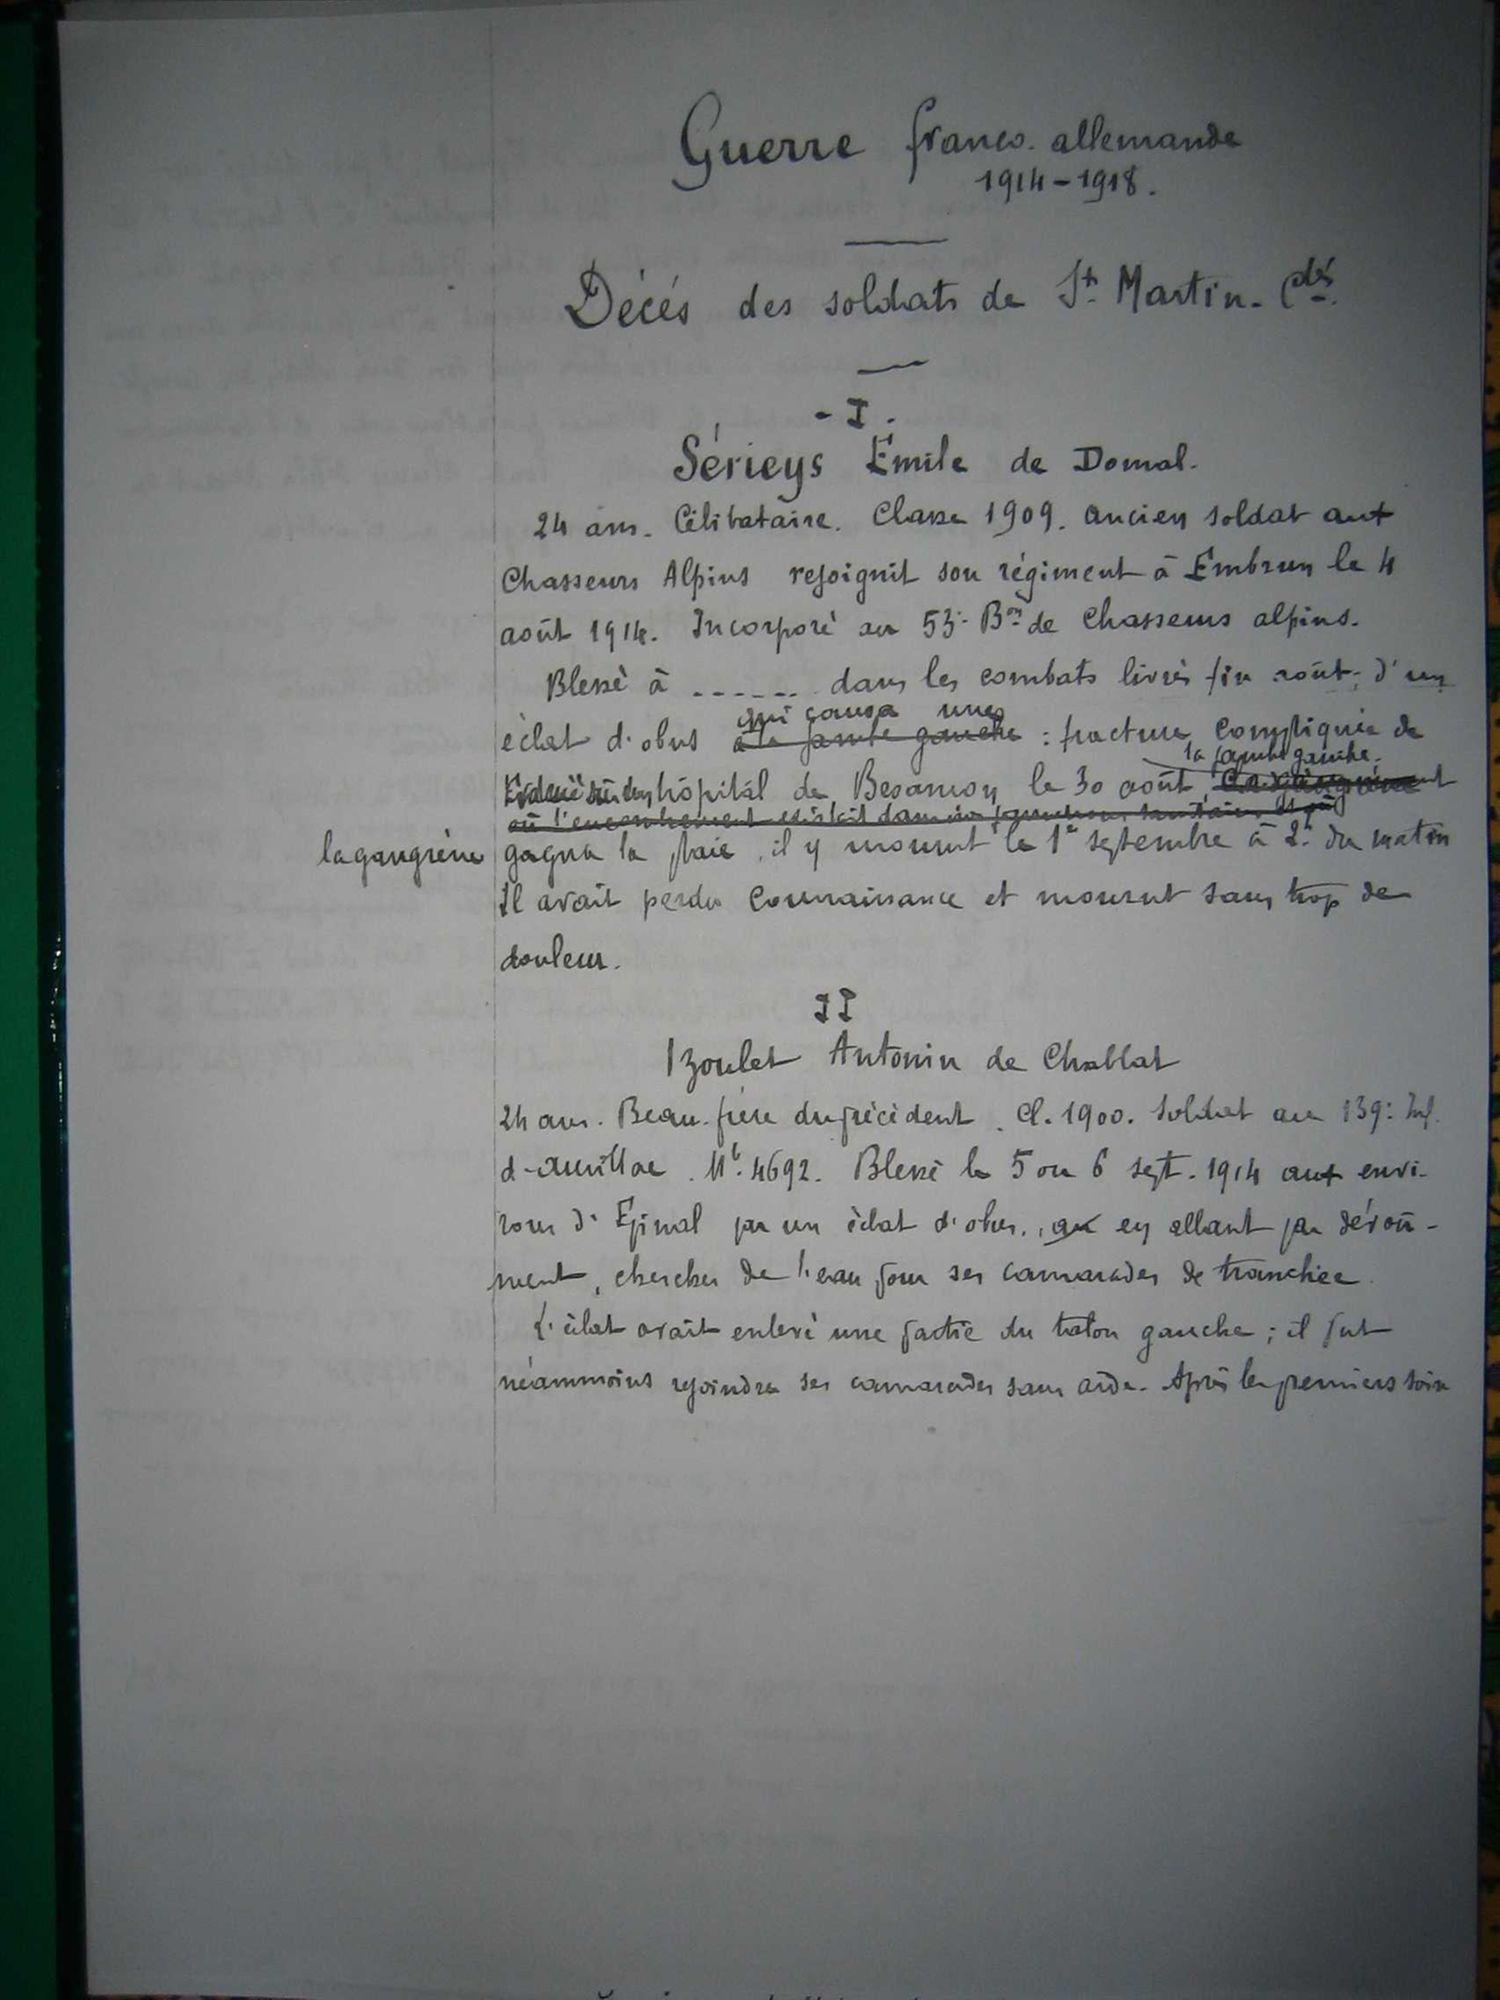 Guerre franco-allemande
1914-1918.
Décés des soldats de St Martin-Cdés
- I -
Sérieys Émile de Domal.
24 ans. Célibataire. Classe 1909. Ancien soldat aux
Chasseurs Alpins rejoignit son régiment à Embrun le 4
août 1914. Incorporé au 53e Bon de chasseurs alpins.
Blessé à ------ dans les combats livrés fin août, d'un
qui causa une
éclat d'obus à la jambe gauche : fracture compliquée de
la jambe gauche.
Evacué sur l'hôpital de Besançon le 30 août, La gangrène
où l'encombrement existait dans
la gangrène gagna la plaie, il y mourut le 1er septembre à 2h du matin
Il avait perdu connaissance et mourut sans trop de
douleur.
II
Izoulet Antonin de Chablat
24 ans. Beau-frère du précédent. Cl. 1900. Soldat au 139e Inf.
d'Aurillac. Mle 4692. Blessé le 5 ou 6 sept. 1914 aux envi-
rons d'Epinal par un éclat d'obus, en allant par dévoû-
ment, chercher de l'eau pour ses camarades de tranchée.
L'éclat avait enlevé une partie du talon gauche ; il put
néammoins rejoindre ses camarades sans aide. Après les premiers soins